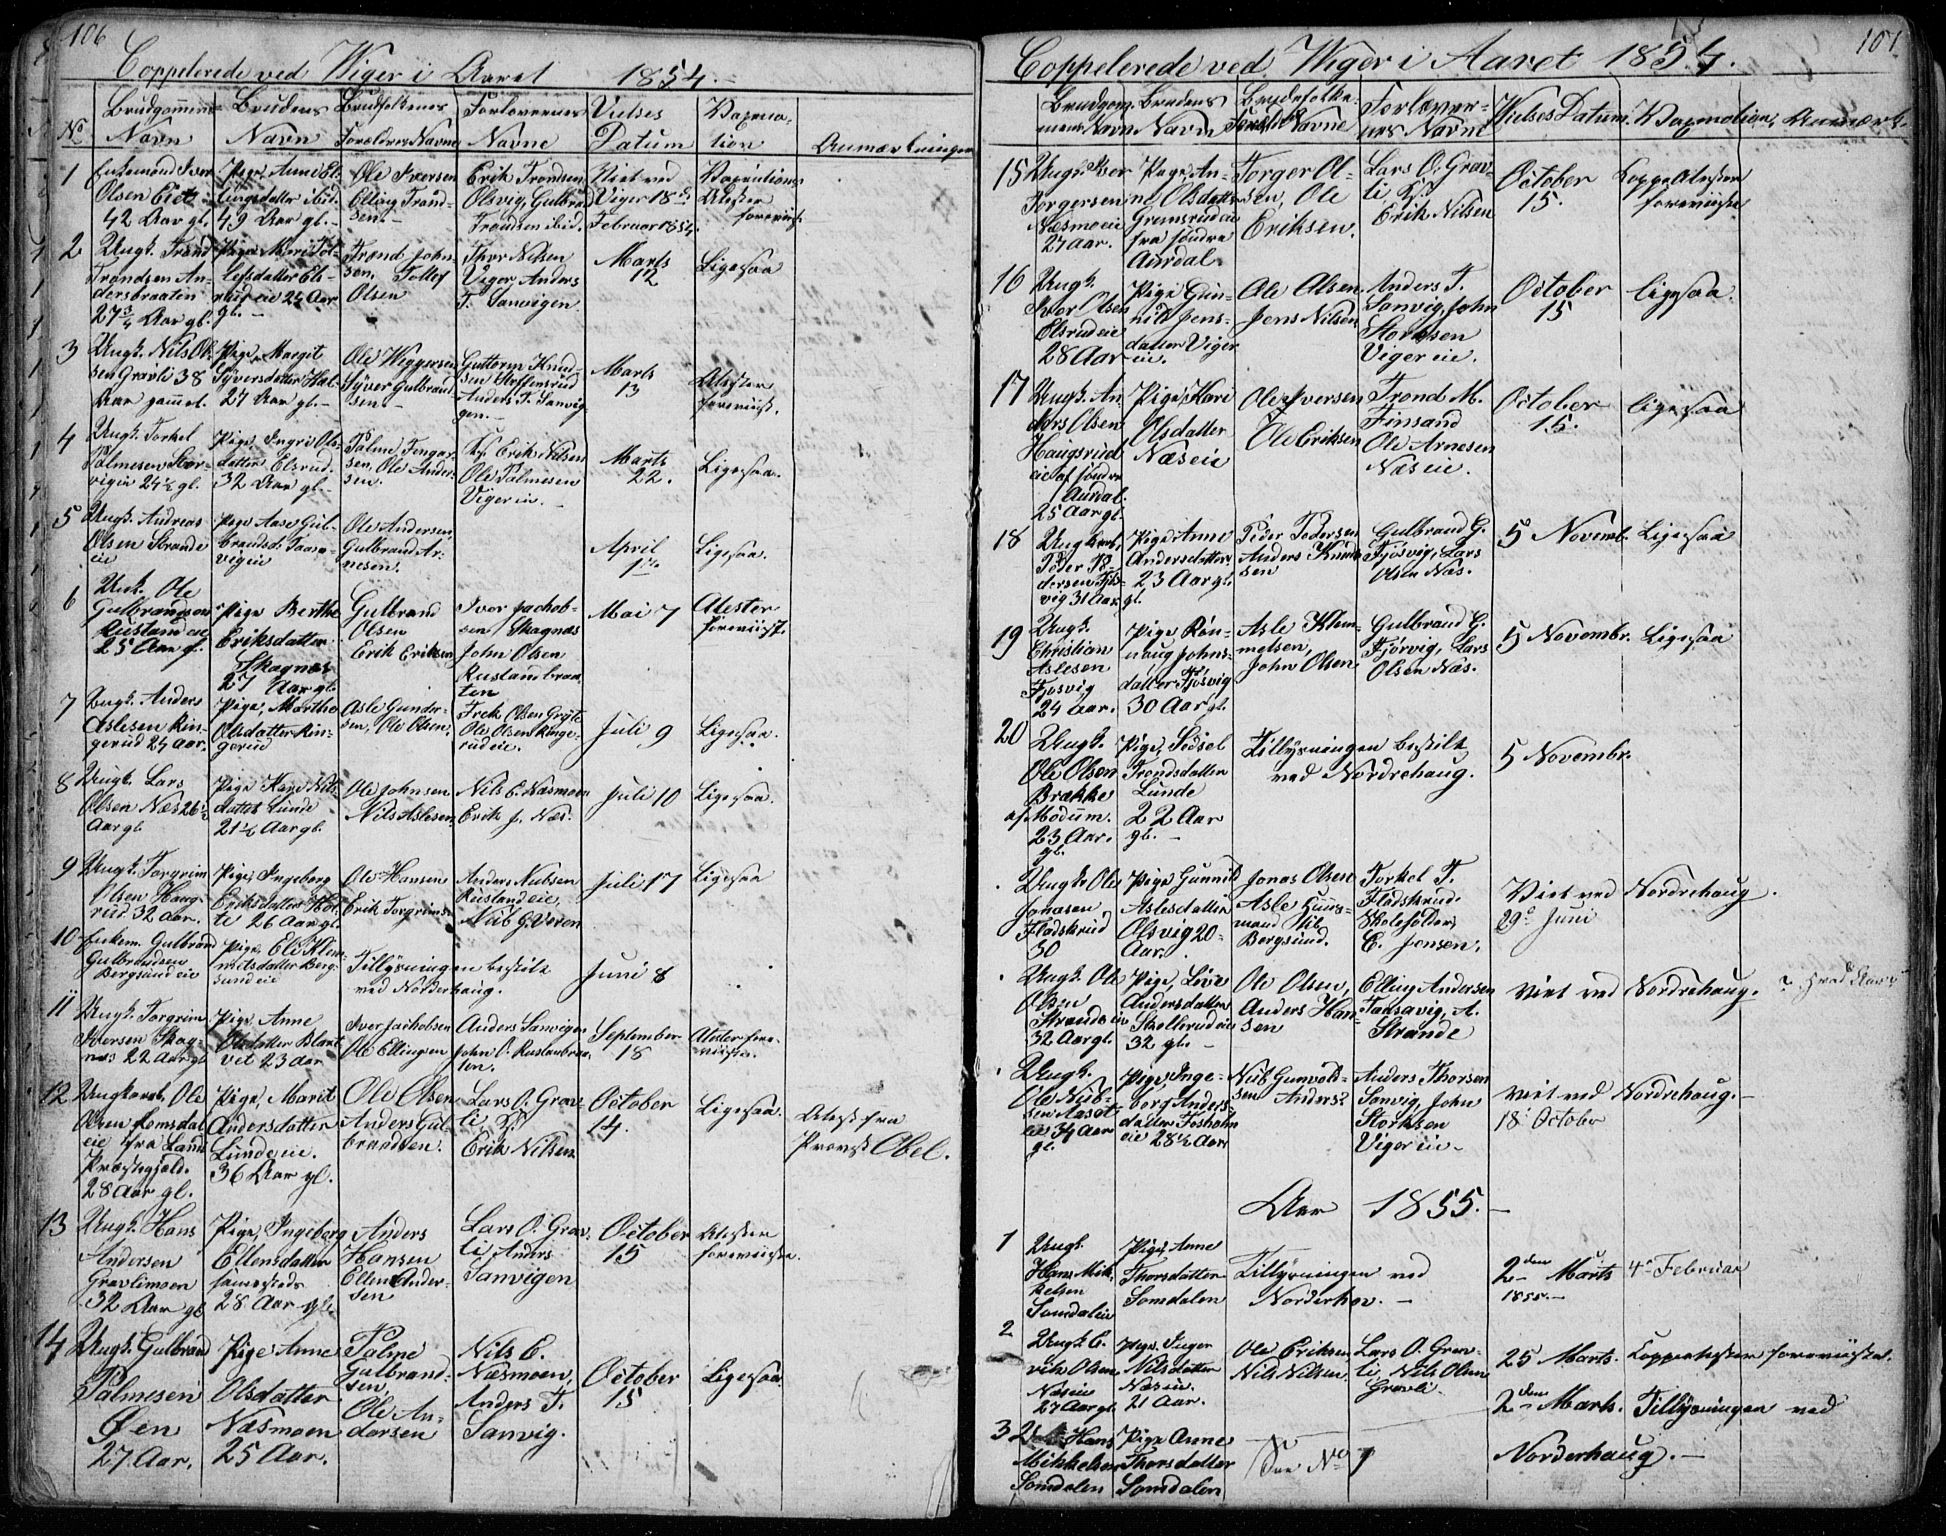 106
Coppelerede ved Wiger i Aaret 1854.
No
Brudgommens Navn
Brudens Navn
Brudfolkenes Forældres Navne
Forlovernes Navne
Vielses Datum
Vaccination
Anmærkninger
1
Enkemand Iver
Olsen
42 Aar gl.
Pige, Anne El-
lingsdatter ibid.
49 Aar gl.
Ole Iversen
Elling Trond-
sen.
Erik Trondsen
Olsvig, Gulbrand
Trondsen ibid.
Viet ved
Viger 18de
Februar 1854.
Vaccinations
Atester
foreviist.
2
Ungk. Trond
Trondsen An-
dersbraaten
27 3/4 Aar gl.
Pige Mari Tol-
lefsdatter Els-
rud eie 24 Aar
gl.
Trond John-
sen, Tollef
Olsen
Thor Nilsen
Viger, Anders
T. Sanvigen
Marts
12
Ligesaa
3
Ungk. Nils Ol-
sen Gravli 38
Aar gammel.
Pige, Margit
Syversdatter
27 Aar gl.
Ole Wiggersen
Syver Gulbrand-
sen.
Guttorm Knud-
sen Steffensrud
Anders T. Sanvi-
gen.
Marts
13
Atester
foreviist.
4
Ungk. Torkel
Palmesen
24 1/2 gl.
Pige, Ingri Ols-
datter Elsrud.
32 Aar gl.
Palme
Ole Ander-
sen.
Erik Nilsen
Ole Palmesen
Viger eie.
Marts
22.
Ligesaa.
5
Ungk. Andreas
Olsen Strande
eie
Pige Aase Gul-
brandsd.
Ole Andersen,
Gulbrand Ar-
nesen.
April
Ligesaa.
6
Ungk. Ole
Gulbrandsen
Rustand eie
25 Aar gl.
Pige Berthe
Eriksdatter
Skagnæs
27 Aar gl.
Gulbrand
Olsen
Erik Eriksen
Iver Jachob-
sen Skagnæs
John Olsen
Rustanbraa-
ten
Mai 7
Atester
foreviist.
7
Ungk. Anders
Aslesen Rin-
gerud 24 Aar.
Pige, Marthe
Olsdatter Rin-
gerud
Asle Gunder-
sen, Ole Olsen.
Olsen
Ole Olsen Ringe-
rud eie.
Juli 9
Ligesaa.
8
Ungk. Lars
Olsen Næs 26 1/2
Aar gl.
Pige Kari Nils-
datter Lunde
21 1/2 Aar gl.
Ole Johnsen
Nils Aslesen.
Nils E. Næsmoen
Erik J. Næs.
Juli 10
Ligesaa.
9
Ungk. Torgrim
Olsen Haug-
rud 32 Aar.
Pige, Ingeborg
Eriksdatter
26 Aar gl.
Ole Hansen
Erik Torgrims.
Anders Nubsen
Rustand eie,
Nub G. Veren
Juli 17
Ligesaa
10
Enkem. Gulbrand
Gulbrandsen
Bergsund eie
Pige, Eli Klem-
metsdatter Berg-
sund eie
Tillysningen bestilt
ved Norderhaug.
Juni 8
11
Ungk. Torgrim
Iversen Skag-
næs 22 Aar gl.
Pige Anne
Olsdatter
23 Aar
Iver Jachobsen
Ole Ellingsen
Anders Sanvigen
John O. Rustanbraa-
ten.
September
18
Atester fore-
viiste.
12
Ungkarl, Ole
Olsen Lomsdal
eie fra Land
Præstegjæld.
28 Aar gl.
Pige, Marit
Andersdatter
Lunde eie.
36 Aar gl.
Ole Olsen
Anders Gul-
brandsen.
Lars O. Grav-
li,
Erik Nilsen
October
14.
Ligesaa.
Atest fra
Provst Obel.
13
Ungk. Hans
Andersen
Gravlimoen
32 Aar gl.
Pige, Ingeborg
Ellensdatter
sammesteds
28 Aar gl.
Anders
Hansen
Ellen Ander-
sen
Lars O. Grav-
li Anders
Sanvigen
October
15
Atester
foreviiste.
14
Ungk. Gulbrand
Palmesen
Øen
27 Aar.
Pige Anne
Olsdatter
Næsmoen
25 Aar.
Palme
Gulbrand-
sen,
Ole An-
dersen
Nils E.
Næsmoen,
Anders T.
Sanvig.
October
15
Ligesaa
107
Coppelerede ved Wiger i Aaret 1854.
Brudgom-
mens Navn
Brudens
Navn
Brudefolke-
Navne
Forlover-
nes Navne
Vielses Datum.
Vaccination.
Anmærk.
15
Ungk. Iver
Torgersen
Næsmoeie
27 Aar.
Pige An-
ne Olsdatter
Grimsrud eie
fra søndre
Aurdal.
Torger Ol-
sen, Ole
Eriksen.
Lars O. Grav-
li,
Erik Nilsen
October
15.
Koppeatester
foreviiste
16
Ungk.
Iver Olsen
Elsrud eie
28 Aar
Pige Gun-
nild Jens-
datter Viger
eie.
Ole Olsen
Jens Nilsen
Anders T.
Sanvig, John
Storksen
Viger eie.
October
15
ligesaa.
17
Ungk. An-
ders Olsen
Haugsrud
eie af søndre
Aurdal.
25 Aar gl.
Pige, Kari
Olsdatter
Næs eie
Ole Iversen
Ole Eriksen
Trond M.
Finsand
Ole Arnesen
Næs eie.
October
15.
ligesaa
18
Ungkarl,
Peder Pe-
dersen Fjøs-
vig 31 Aar gl.
Pige Anne
Andersdatter
23 Aar gl.
Peder Pedersen
Anders Knud-
sen
Gulbrand G.
Fjøsvig, Lars
Olsen Næs.
5 Novemb.
Ligesaa
19
Ungk.
Christian
Aslesen
Fjøsvig
24 Aar.
Pige Røn-
naug Johns-
datter Fjøsvig
30 Aar gl.
Asle Klem-
metsen,
John Olsen
Gulbrand G.
Fjørvig, Lars
Olsen Næs.
5 Novembr.
Ligesaa
20
Ungk.
Ole Olsen
Brække
af Modum.
23 Aar.
gl.
Pige, Sidsel
Trondsdatter
Lunde
22 Aar
gl.
Tillysningen bestilt
ved Nordrehaug.
5 Novembr.
Ungk. Ole
Jonasen
Fladskrud
30
Pige Gunnild
Aslesdatter
Olsvig 20
Aar.
Jonas Olsen
Asle Huus-
mand
Bergsund.
Torkel T.
Fladskrud.
Skoleholder
E. Jensen.
Viet ved Nordrehaug.
29de Juni
Ungk. Ole
Olsen
Strande eie
32 Aar gl.
Pige, Live
Andersdatter
eie
32 gl.
Ole Olsen,
Anders Han-
sen
Elling Andersen
A.
Strande
Viet ved Nordrehaug.
Ungk.
Ole Nub-
sen
eie 34 Aar
gl.
Pige, Inge-
borg Anders-
datter Fosholm
eie 28 1/2 Aar
Nub Gunvold-
sen Anders?
Anders Thorsen
Sanvig, John
Storksen
Viger eie
Viet ved Nordrehaug.
18 October
Aar 1855.
1
Ungk.
Hans Mik-
kelsen
Somdal eie
Pige Anne
Thorsdatter
Somdalen
Tillysningen ved
Norderhov.
2den Marts
1855.
4de Februar
2
Ungk. E-
rik Olsen
Næs eie
27 Aar gl.
Pige, Inger
Nilsdatter
Næs eie.
21 Aar.
Ole Eriksen,
Nils Nilsen.
Lars O. Grav-
li, Nils Olsen
Gravli
25 Marts.
Koppeatester foreviiste.
3
Hans
Mikkelsen
Somdalen
Pige Anne
Thorsdatter
Somdalen
See No 1
2den Marts. Tillysningen ved
Norderhaug.